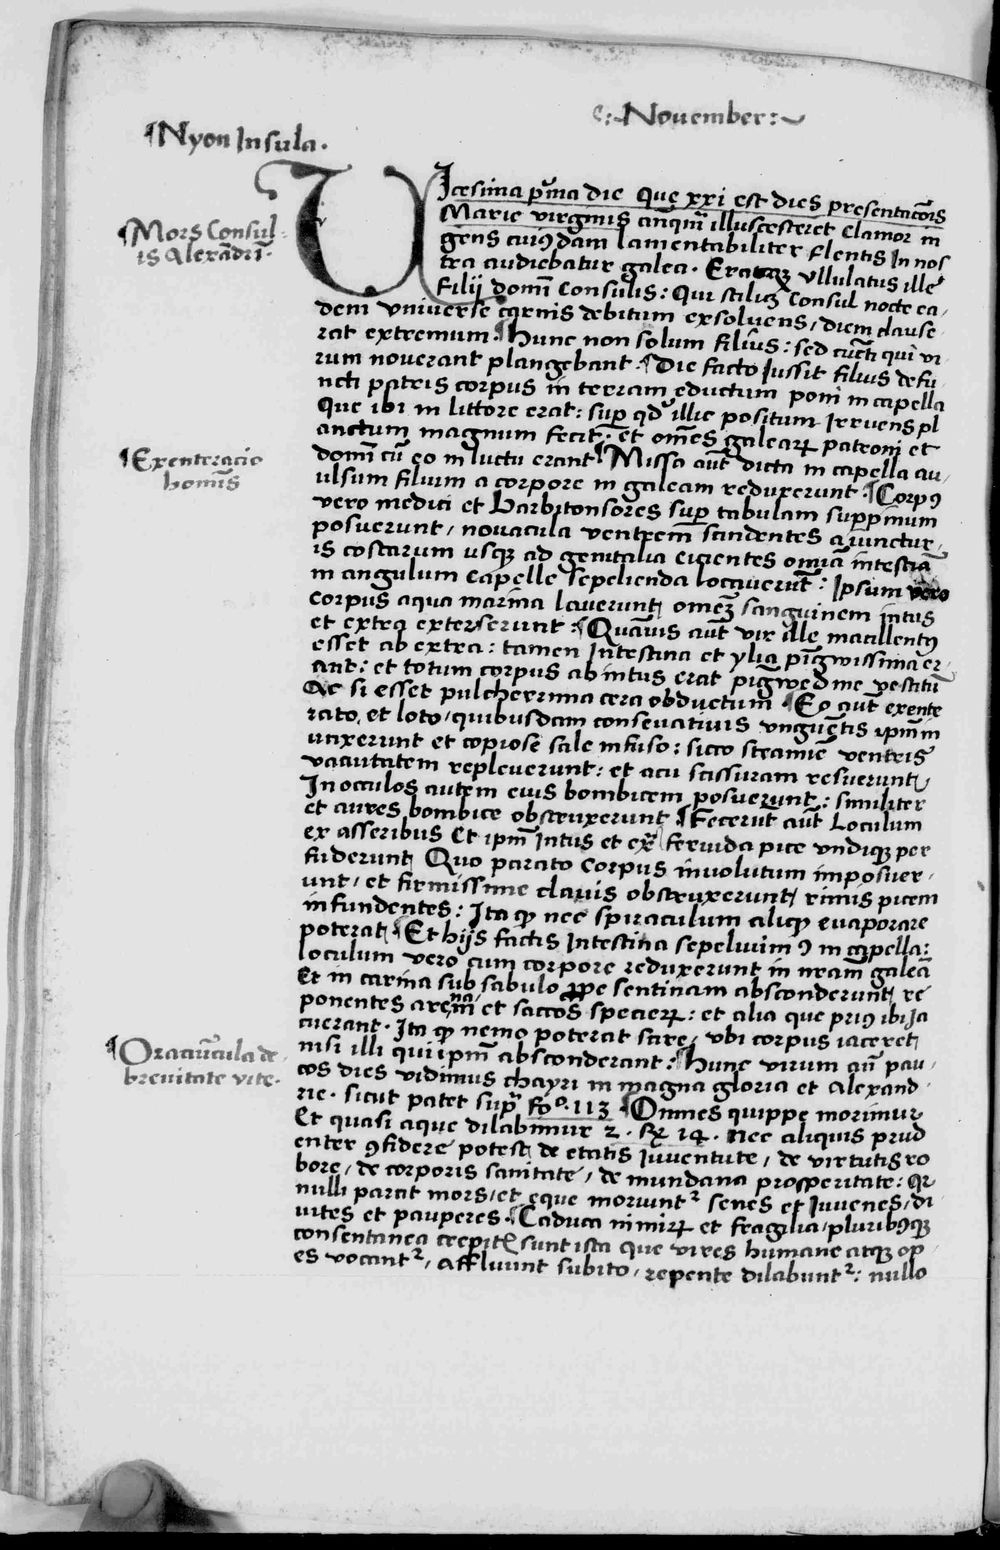 :November:
¶Nyon Insula.
VIcesima prͥma die Que xxi est dies presentacōis
Marie virginis anq̄m illuscesceret clamor in
¶Mors Consul-
is Alexādrī.
gens cuiꝰdam lamentabiliter flentis In nos
tra audiebatur galea. Eratqꝫ vllulatus ille
filij domī Consulis: Qui scilicꝫ Consul nocte ea,
dem vniverse carnis debitum exsoluens, diem clause
rat extremum. ¶hunc non solum filius: sed cūcti qui vi-
rum noverant plangebant. ¶Die facto Jussit filius defu-
ncti patris corpus in terram eductum poni in capella
Que ibi in littore erat: sup qd illic positum Irruens pl
anctum magnum fecit. et om̄es galeaꝝ patroni et
domī cū eo in luctu erant ¶Missa aūt dicta in capella au-
¶Exenteracio
homīs
ulsum filium a corpore in galeam reduxerunt. ¶Corpꝰ
vero medici et barbitonsores sup tabulam suppinum
posuerunt, novacula ventrem̄ scindentes a iunctur,
is costarum usqꝫ ad genitalia eicientes omīa intestīa
in angulum Capelle sepelienda locauerūt: Ipsum vero
corpus aqua marina lauerunt, omeꝫ sanguinem intus
et extra exterserunt: ¶Quāuis aūt vir ille macillentꝰ
esset ab extra: tamen Intestina et ylia pīgwissima er-
ant: et totum corpus ab intus erat pīgwedine vestitū
Ac si esset pulcherrima cera obductum. ¶Eo aūt exente
rato, et loto, quibusdam consevativis vnguētis ipm̄ in
unxerunt et copiose sale infuso: sicco stramīe ventris
vacuitatem repleuerunt: et acu scissuram resuerunt,
In occulos autem eius bombicem posuerunt: similiter
et aures bombice obstruxerunt ¶Fecerūt aūt Loculum
ex asseribus Et ipm̄ Intus et exͣ feruida pice vndiqꝫ per
fuderunt, Quo parato Corpus involutum imposuer-
unt, et firmissime clavis obstruxerunt, rimis picem
infundentes: Ita qꝫ nec spiraculum aliqꝫ evaporare
poterat, ¶Et hijs factis Intestina sepeliuimꝰ in capella:
loculum vero cum corpore reduxerunt in nram̄ galeā
Et in carina sub sabulo ꝓpe sentinam absconderunt, re
ponentes arenam̄ et saccos specierꝝ: et alia que priꝰ ibi ja
cuerant. Ita qꝫ nemo poterat scire, vbi corpus iaceret,
¶Oraciūcula de
brevitate vite.
nisi illi qui ipm̄ absconderant: ¶hunc virum aū pau-
cos dies vidimus chayri in magna gloria et Alexand-
rie. sicut patet supͣ foͦ. 113 ¶Omnes quippe morimur
Et quasi aque dilabimur 2. Rꝫ 14. Nec aliquis prud
enter ꝯfidere potest, de etatis Iuventute, de virtutis ro
bore, de corporis sanitate, de mundana prosperitate: qꝛ
nulli parcit mors, et eque moriuntᷣ senes et Iuvenes, di-
uites et pauperes. ¶Caduca nimirꝝ et fragilia, pluribꝰqꝫ
consentanea crepitꝭ sunt ista que vires humane atqꝫ op-
es vocantᷣ, Affluunt subito, repente dilabuntᷣ: nullo